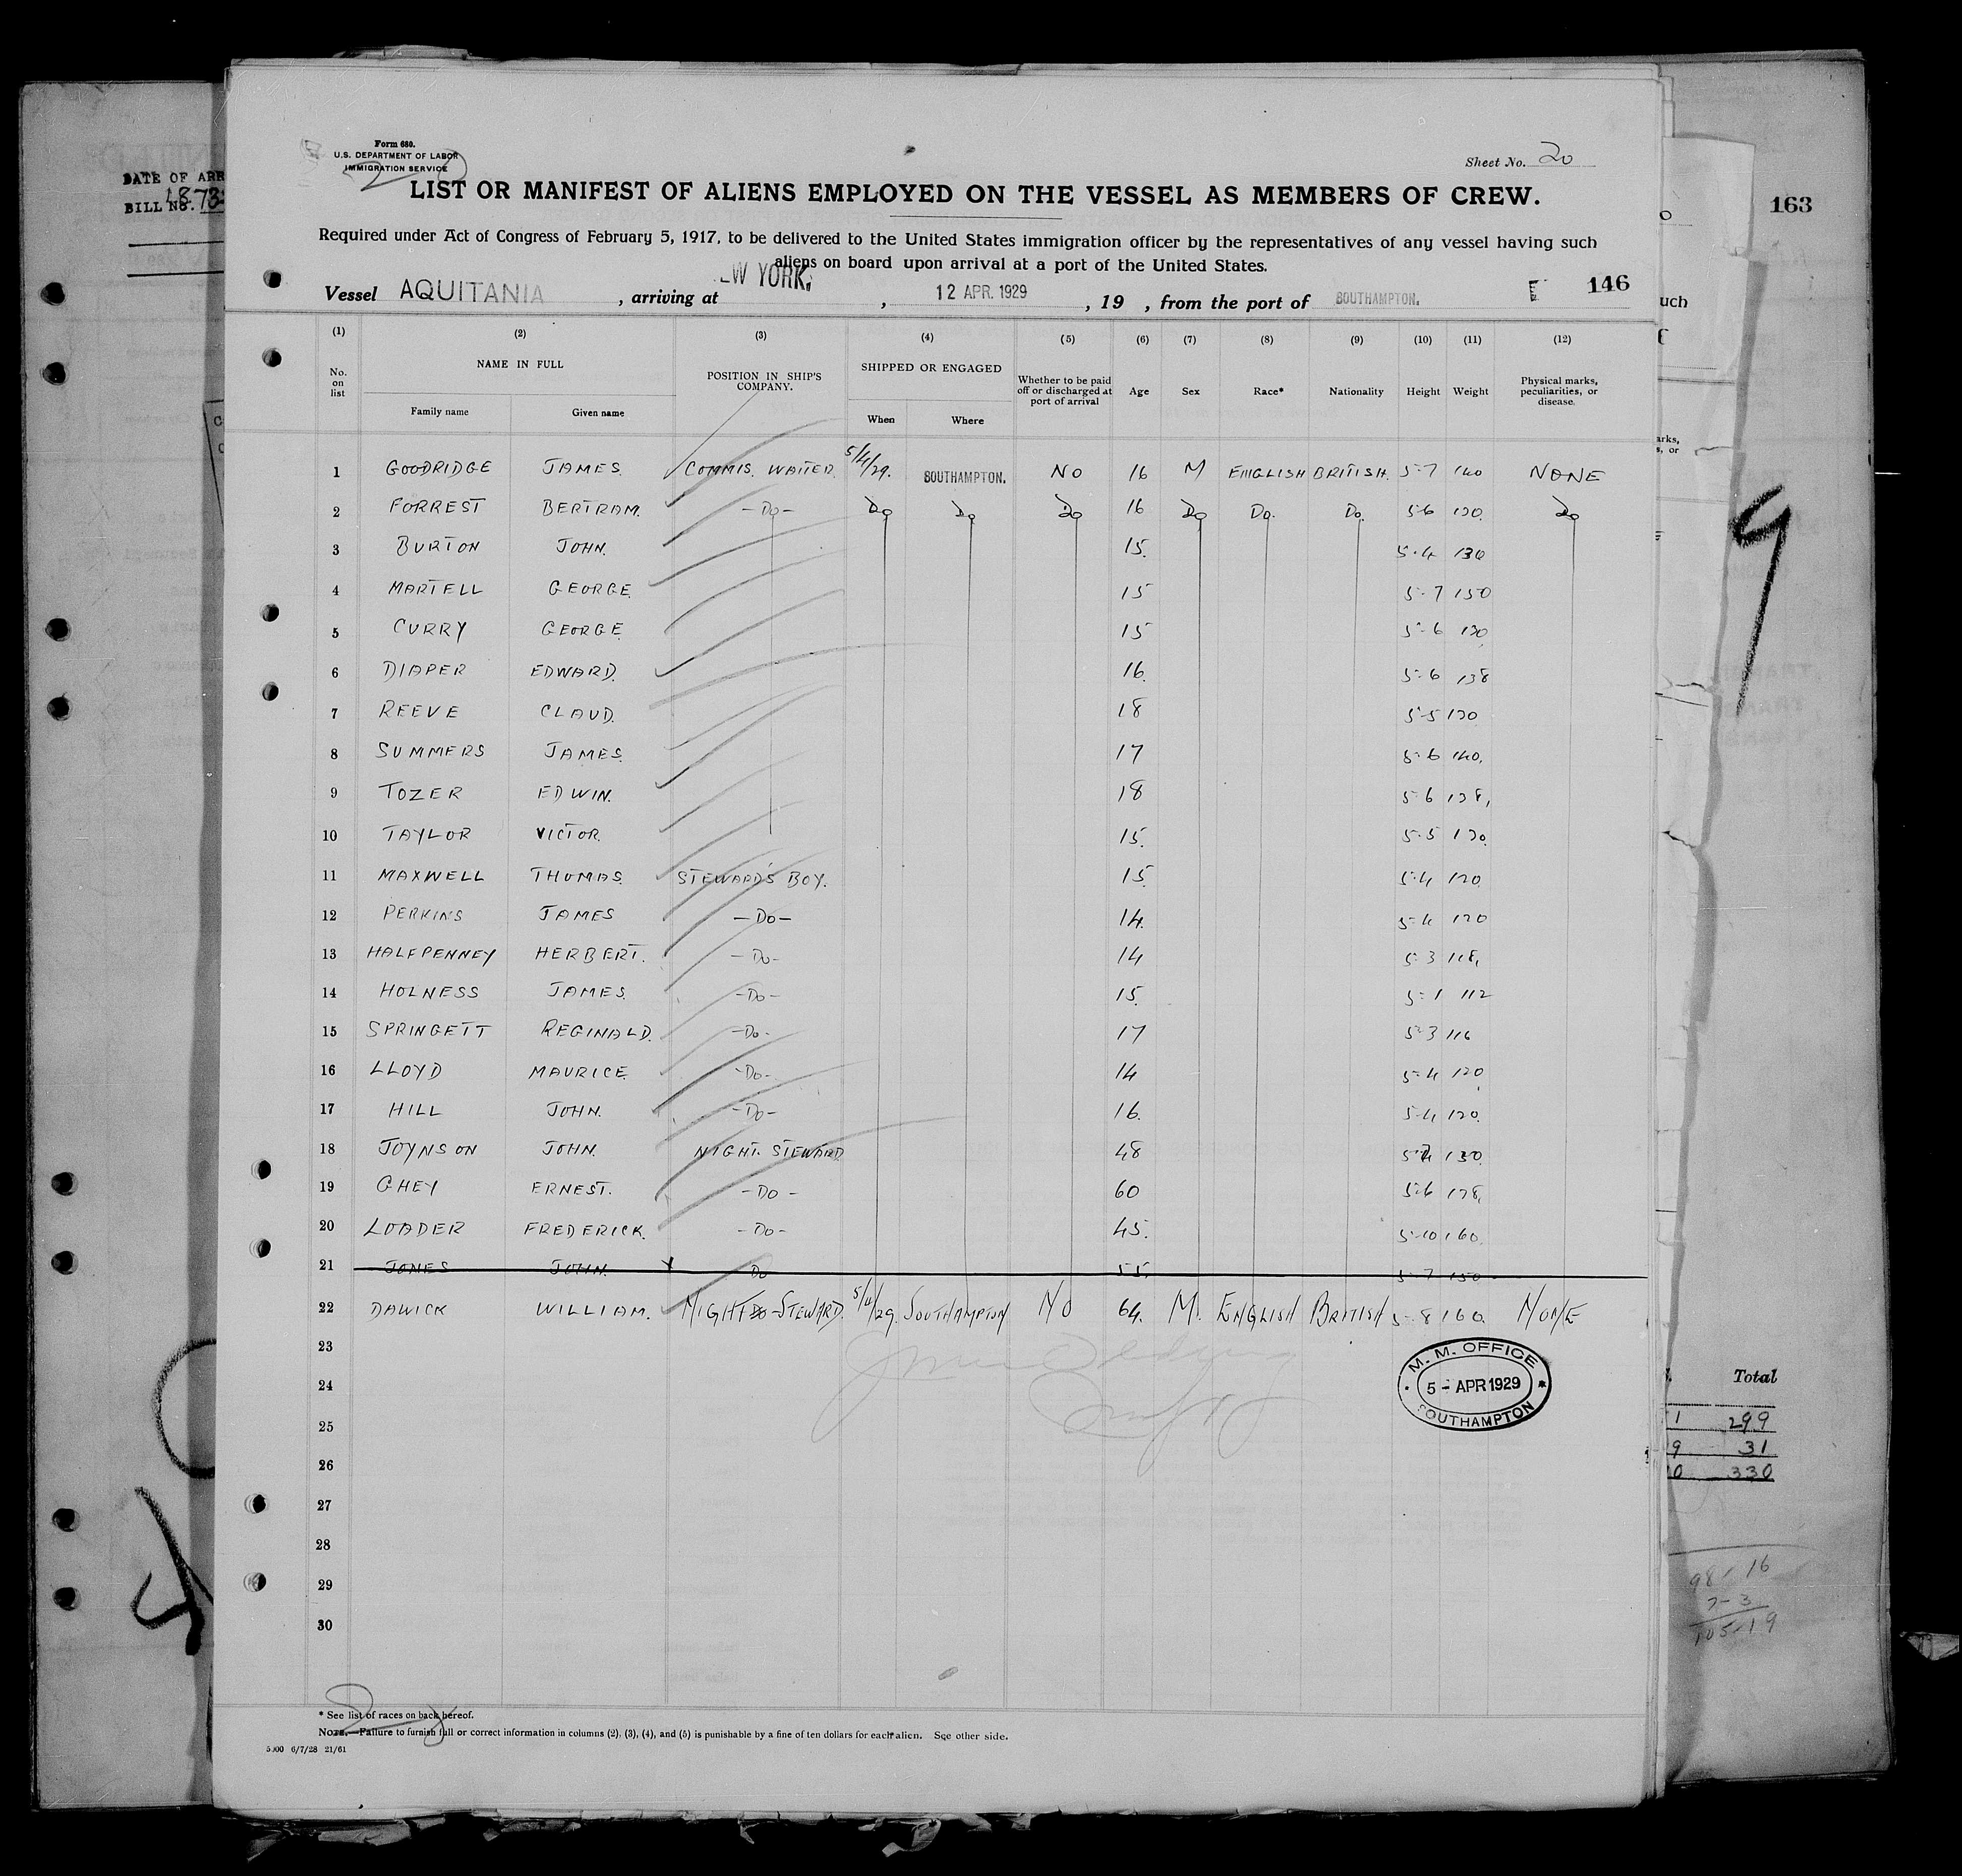 DATE OF ARR
BILL NO. 1873
Form 680.
U.S. DEPARTMENT OF LABOR
IMMIGRATION SERVICE
Sheet No. 20
LIST OR MANIFEST OF ALIENS EMPLOYED ON THE VESSEL AS MEMBERS OF CREW.
Required under Act of Congress of February 5, 1917, to be delivered to the United States immigration officer by the representatives of any vessel having such
aliens on board upon arrival at a port of the United States.
Vessel AQUITANIA, arriving at EW YORK, 12 APR. 1929, 19 , from the port of SOUTHAMPTON. 146
163
uch
(1) (2) (3) (4) (5) (6) (7) (8) (9) (10) (11) (12)
No. on list NAME IN FULL Family name Given name POSITION IN SHIP'S COMPANY. SHIPPED OR ENGAGED When Where Whether to be paid off or discharged at port of arrival Age Sex Race* Nationality Height Weight Physical marks, peculiarities, or disease.
1 GOODRIDGE JAMES. COMMIS. WAITER. 5/4/29. SOUTHAMPTON. NO 16 M ENGLISH BRITISH. 5-7 140 NONE
2 FORREST BERTRAM. -Do- Do Do Do 16 Do Do. Do. 5-6 120. Do
3 BURTON JOHN. 15. 5-4 130
4 MARTELL GEORGE. 15 5-7 150
5 CURRY GEORGE. 15 5-6 130
6 DIAPER EDWARD. 16. 5-6 138
7 REEVE CLAUD. 18 5-5 120
8 SUMMERS JAMES. 17 5-6 140.
9 TOZER EDWIN. 18 5-6 128.
10 TAYLOR VICTOR. 15. 5-5 120.
11 MAXWELL THOMAS. STEWARD'S BOY. 15. 5-4 120
12 PERKINS JAMES -Do- 14. 5-4 120
13 HALFPENNEY HERBERT. -Do- 14 5-3 118.
14 HOLNESS JAMES. -Do- 15. 5-1 112
15 SPRINGETT REGINALD. -Do- 17 5-3 116
16 LLOYD MAURICE. -Do- 14 5-4 120
17 HILL JOHN. -Do- 16. 5-4 120.
18 JOYNSON JOHN. NIGHT. STEWARD. 48 130.
19 GHEY ERNEST. -Do- 60 5-6 178.
20 LOADER FREDERICK. -Do- 45. 5-10 160.
21 JONES JOHN. Do 55. 5-7 150
22 DAWICK WILLIAM. NIGHT STEWARD. 5/4/29. SOUTHAMPTON NO 64. M. ENGLISH BRITISH 5-8 160. NONE
23
24
25
26
27
28
29
30
M. M. OFFICE
5 - APR 1929
SOUTHAMPTON
Total
1 299
9 31
0 330
98-16
7-3
105-19
* See list of races on back hereof.
NOTE.—Failure to furnish full or correct information in columns (2), (3), (4), and (5) is punishable by a fine of ten dollars for each alien. See other side.
5000 6/7/28 21/61